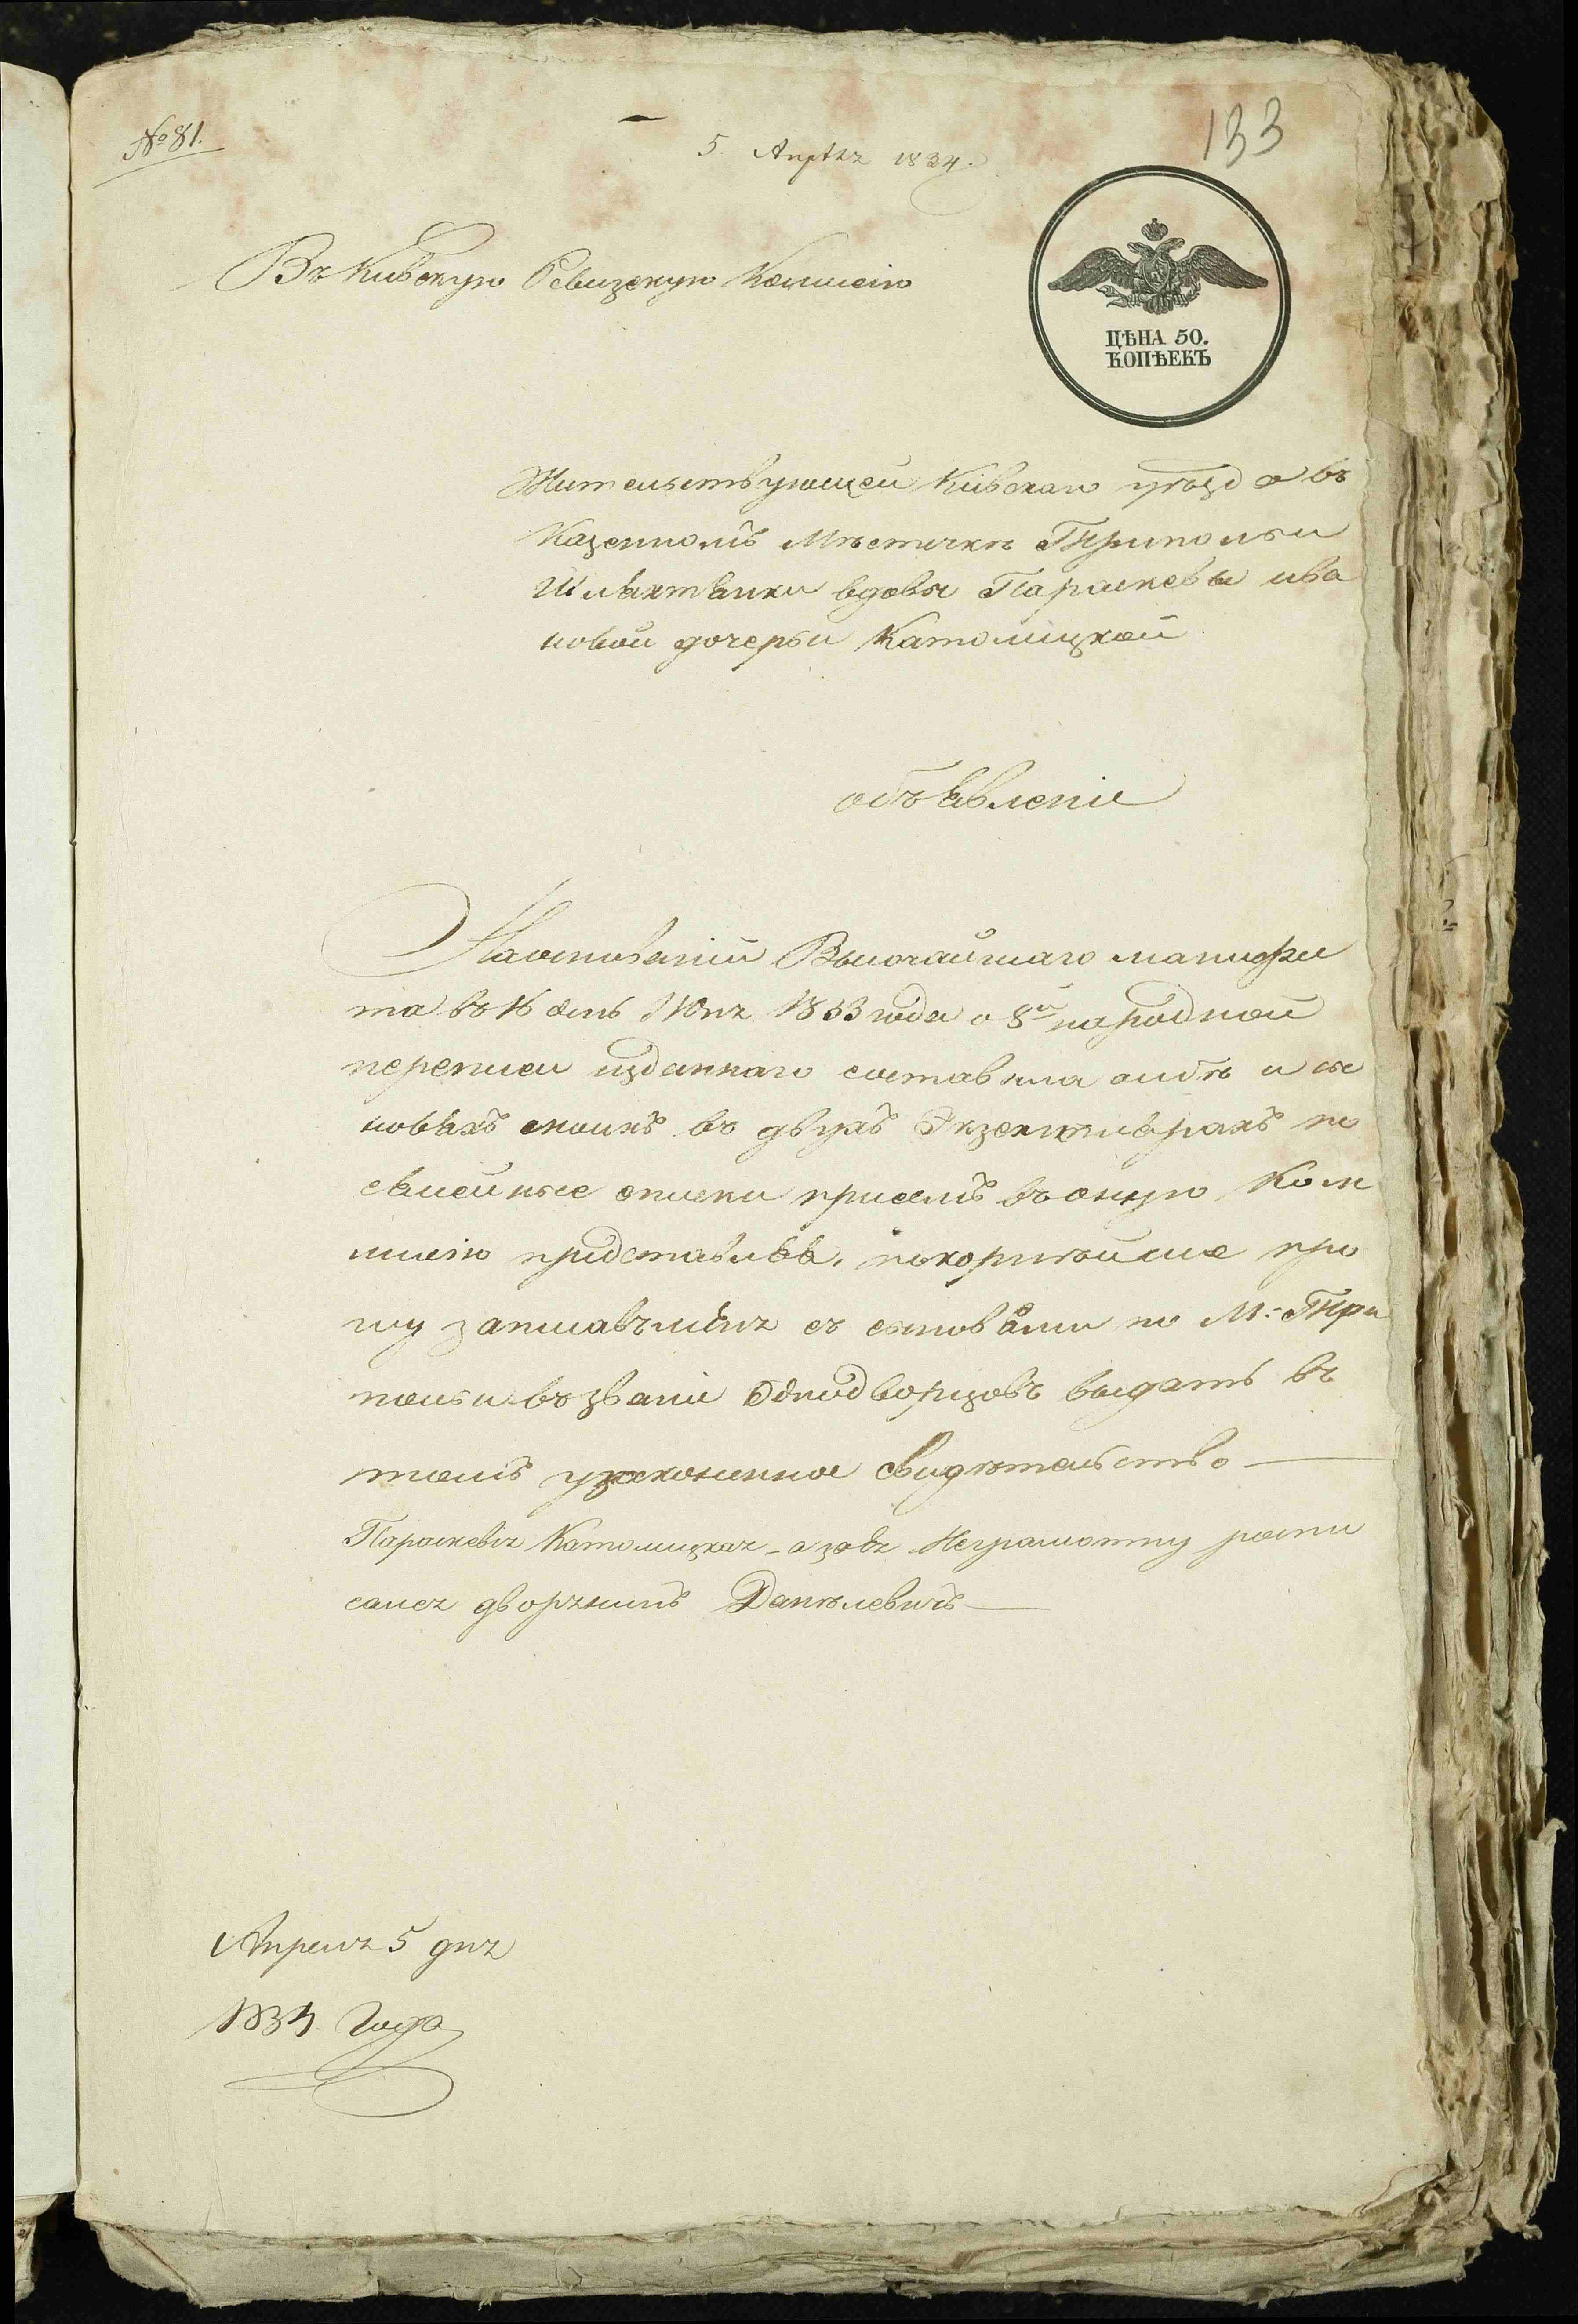 № 81.
5. Апрѣля 1834.
133
Въ Киевскую Ревизскую Комисію
ЦѢНА 50.
КОПѢЕКЪ
Жительствующей Кіивскаго уѣзда въ
Казенномъ Мѣстичкѣ Трипольи
Шляхтянки вдовы Параскевы ива
новой дочерьи Катомицкой
объявленіе
На основаніи Высочайшаго манифес
та въ 16 день Июня 1833 года о 8й народной
переписи изданнаго составила о себѣ и сы
новьяхъ моихъ въ двухъ Экземплярахъ по
семейные списки при семъ въ оную Ком
мисію представляя, покорнѣйше про
шу записавъ меня съ сыновьями по М: Три
полью въ званіи Однодворцовъ выдать въ
томъ узаконенное свидѣтельство
Параскевія Катомицкая а за ея Неграмотну роспи
салея дворянинъ Данѣлевичъ
Апреля 5 дня
1834 Года